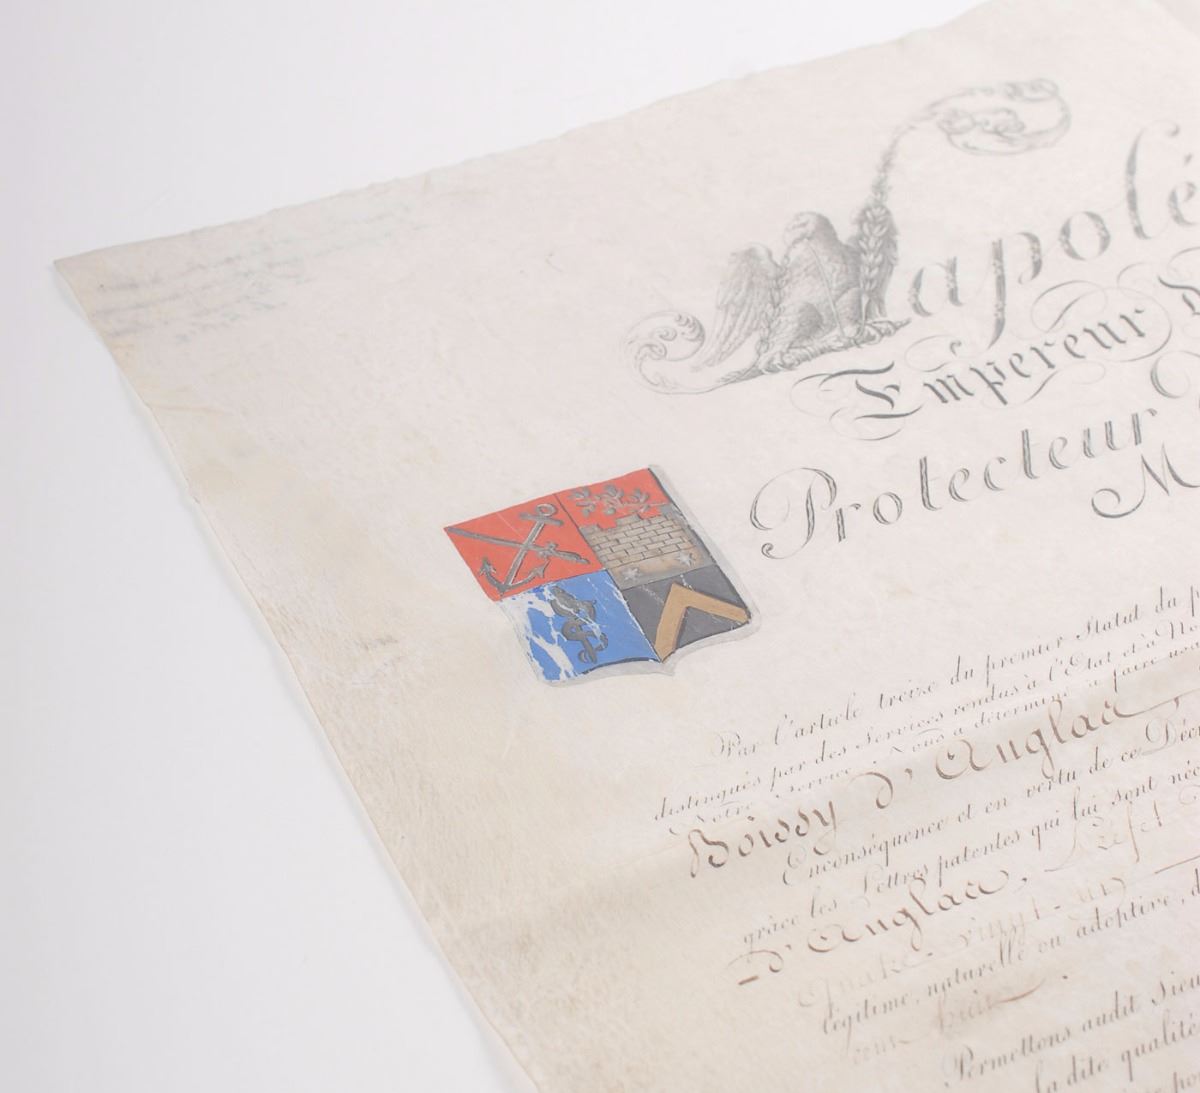 Napolé
Empereur
Protecteur
M
Par l'article treize du premier Statut du
distingués par des Services rendus à l'Etat et à No
Notre Service, Nous a déterminé à faire usa
Boissy d'Anglas,
Enconséquence et en vertu de ce Décr
grâce les Lettres patentes qui lui sont néc
d'Anglas, Sept
vingt-un
légitime, naturelle ou adoptive, d
Permettons audit Sieu
la dite qualité